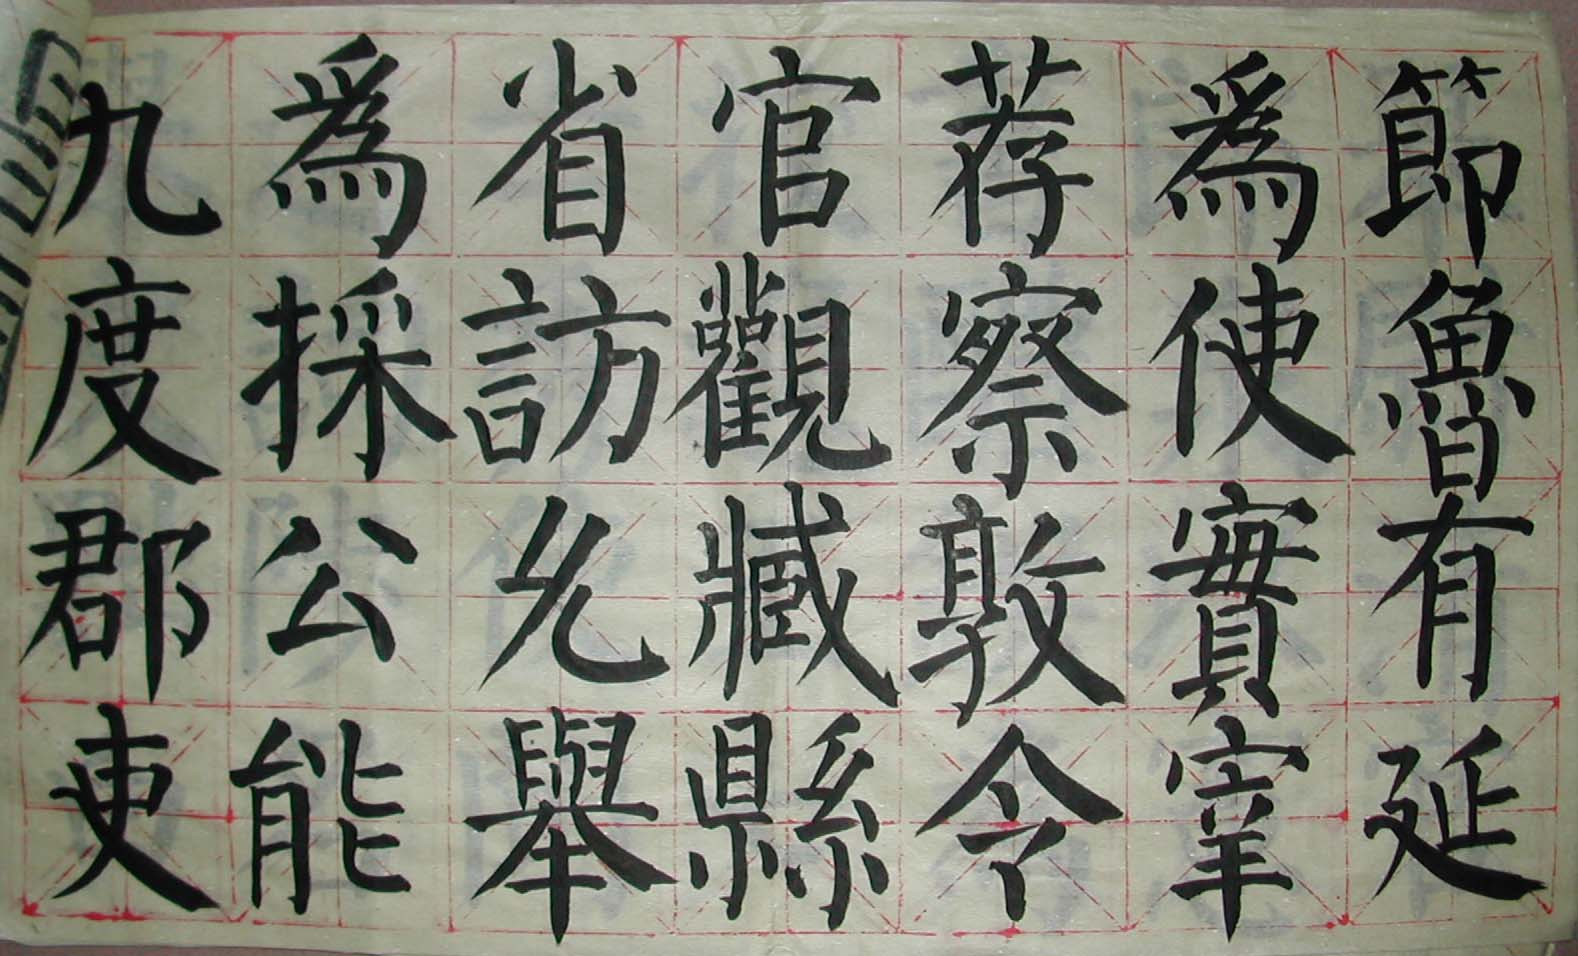 節魯有延
爲使實宰
荐察敦令
官觀臧縣
省訪允舉
爲採公能
九度郡吏